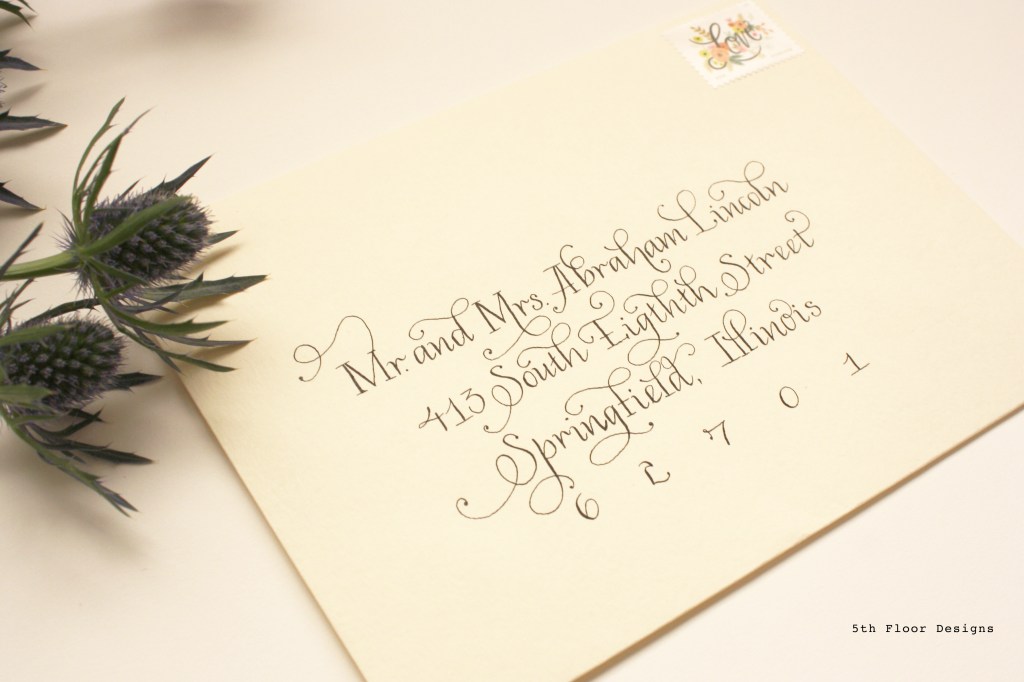 love
Mr. and Mrs. Abraham Lincoln
413 South Eigthth Street
Springfield, Illinois
6 2 7 0 1
5th Floor Designs